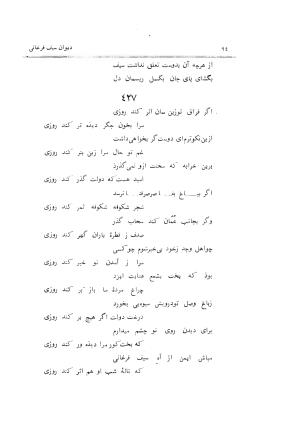 ۹۴ دیوان سیف فرغانی
از هرچه آن بدوست تعلق نداشت سیف
بگشای پای جان بگسل ریسمان دل
۴۲۷
اگر فراق توزین سان اثر کند روزی
مرا بخون جگر دیده تر کند روزی
ازین نکوترم ای دوست گر بخواهی داشت
غم تو حال مرا زین بتر کند روزی
برین خرابه که سخت ازو نمی‌گذرد
امید هست که دولت گذر کند روزی
اگر بباغ
شجر شکوفه شکوفه ثمر کند روزی
وگر بجانب عمان کند سحاب گذر
صدف ز قطرهٔ باران گهر کند روزی
چو اهل وجد زخود بی‌خبر شوم چو کسی
مرا ز آمدن تو خبر کند روزی
بود که بخت بشمع عنایت ایزد
چراغ مردهٔ ما باز بر کند روزی
زباغ وصل تو درویش میوه‌یی بخورد
درخت دولت اگر هیچ بر کند روزی
برای دیدن روی تو چشم میدارم
که بخت کور مرا دیده ور کند روزی
مباش ایمن از آه سیف فرغانی
که نالهٔ شب او هم اثر کند روزی